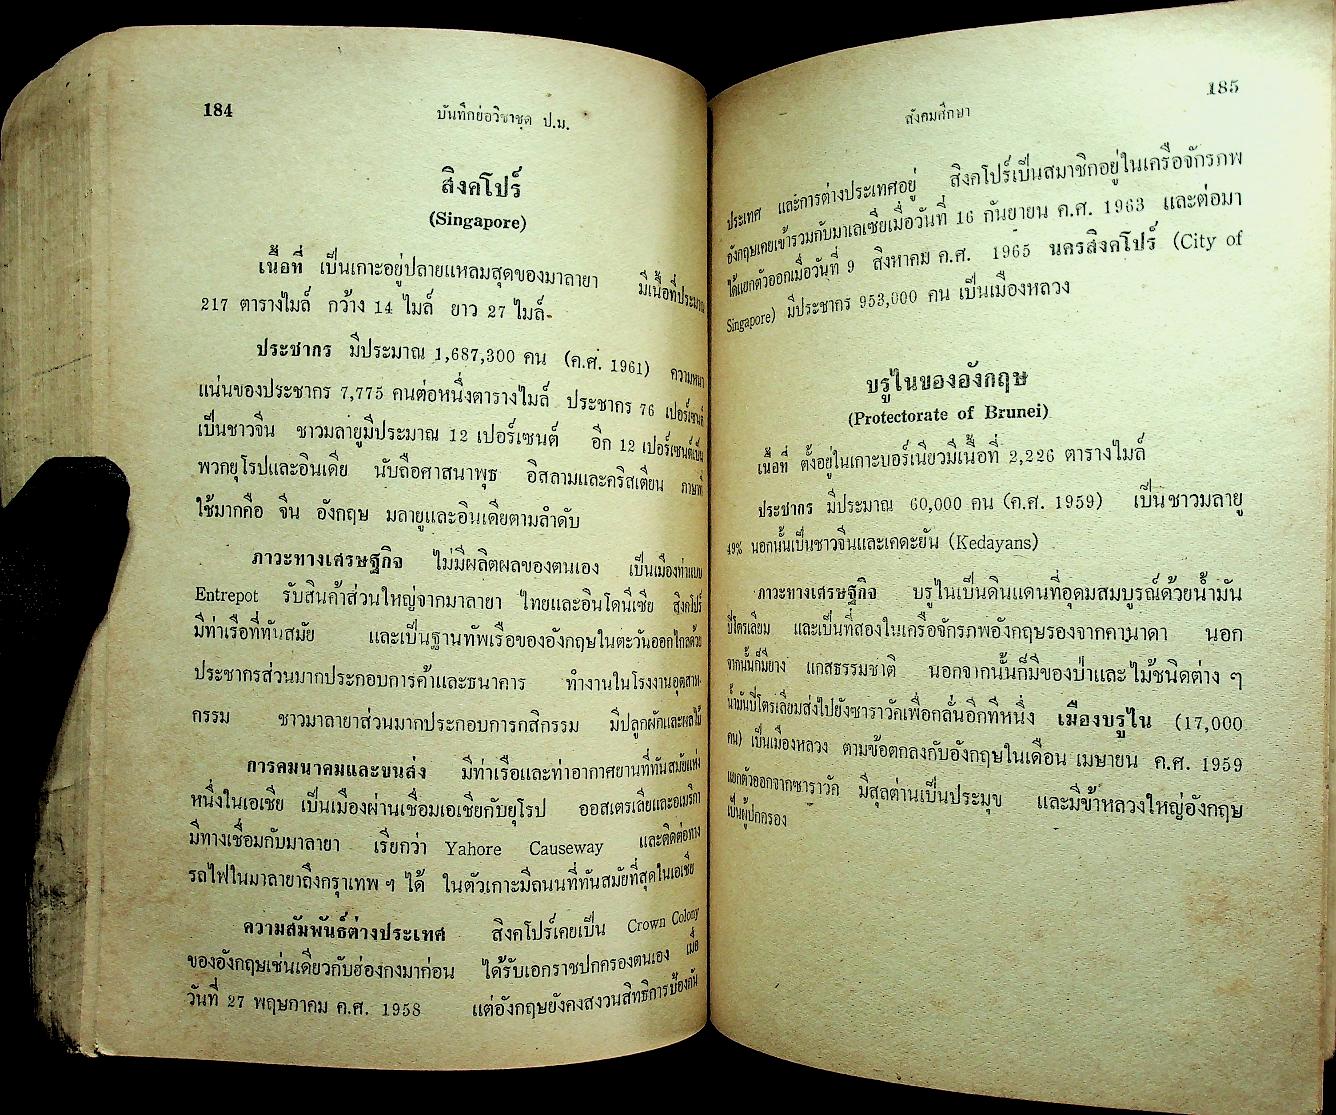 184
บันทึกย่อวิชาชุด ป.ม.
สิงคโปร์
(Singapore)
เนื้อที่ เป็นเกาะอยู่ปลายแหลมสุดของมาลายา มีเนื้อที่ประมาณ
217 ตารางไมล์ กว้าง 14 ไมล์ ยาว 27 ไมล์
ประชากร มีประมาณ 1,687,300 คน (ค.ศ. 1961) ความหนา
แน่นของประชากร 7,775 คนต่อหนึ่งตารางไมล์ ประชากร 76 เปอร์เซนต์
เป็นชาวจีน ชาวมลายูมีประมาณ 12 เปอร์เซนต์ อีก 12 เปอร์เซนต์เป็น
พวกยุโรปและอินเดีย นับถือศาสนาพุธ อิสลามและคริสเตียน ภาษาที่
ใช้มากคือ จีน อังกฤษ มลายูและอินเดียตามลำดับ
ภาวะทางเศรษฐกิจ ไม่มีผลิตผลของตนเอง เป็นเมืองท่าแบบ
Entrepot รับสินค้าส่วนใหญ่จากมาลายา ไทยและอินโดนีเซีย สิงคโปร์
มีท่าเรือที่ทันสมัย และเป็นฐานทัพเรือของอังกฤษในตะวันออกไกลด้วย
ประชากรส่วนมากประกอบการค้าและธนาคาร ทำงานในโรงงานอุตสาห-
กรรม ชาวมาลายาส่วนมากประกอบการกสิกรรม มีปลูกผักและผลไม้
การคมนาคมและขนส่ง มีท่าเรือและท่าอากาศยานที่ทันสมัยแห่ง
หนึ่งในเอเซีย เป็นเมืองผ่านเชื่อมเอเชียกับยุโรป ออสเตรเลียและอเมริกา
มีทางเชื่อมกับมาลายา เรียกว่า Yahore Causeway และติดต่อทาง
รถไฟในมาลายาถึงกรุงเทพ ฯ ได้ ในตัวเกาะมีถนนที่ทันสมัยที่สุดในเอเซีย
ความสัมพันธ์ต่างประเทศ สิงคโปร์เคยเป็น Crown Colony
ของอังกฤษเช่นเดียวกับฮ่องกงมาก่อน ได้รับเอกราชปกครองตนเอง เมื่อ
วันที่ 27 พฤษภาคม ค.ศ. 1958 แต่อังกฤษยังคงสงวนสิทธิการป้องกัน
185
สังคมศึกษา
ประเทศ และการต่างประเทศอยู่ สิงคโปร์เป็นสมาชิกอยู่ในเครือจักรภพ
อังกฤษเคยเข้ารวมกับมาเลเซียเมื่อวันที่ 16 กันยายน ค.ศ. 1963 และต่อมา
ได้แยกตัวออกเมื่อวันที่ 9 สิงหาคม ค.ศ. 1965 นครสิงคโปร์ (City of
Singapore) มีประชากร 953,000 คน เป็นเมืองหลวง
บรูไนของอังกฤษ
(Protectorate of Brunei)
เนื้อที่ ตั้งอยู่ในเกาะบอร์เนียวมีเนื้อที่ 2,226 ตารางไมล์
ประชากร มีประมาณ 60,000 คน (ค.ศ. 1959) เป็นชาวมลายู
49% นอกนั้นเป็นชาวจีนและเคดะยัน (Kedayans)
ภาวะทางเศรษฐกิจ บรูไนเป็นดินแดนที่อุดมสมบูรณ์ด้วยน้ำมัน
ปิโตรเลียม และเป็นที่สองในเครือจักรภพอังกฤษรองจากคานาดา นอก
จากนั้นก็มียาง แกสธรรมชาติ นอกจากนั้นก็มีของป่าและไม้ชนิดต่าง ๆ
น้ำมันปิโตรเลียมส่งไปยังซาราวัคเพื่อกลั่นอีกทีหนึ่ง เมืองบรูไน (17,000
คน) เป็นเมืองหลวง ตามข้อตกลงกับอังกฤษในเดือน เมษายน ค.ศ. 1959
แยกตัวออกจากซาราวัก มีสุลต่านเป็นประมุข และมีข้าหลวงใหญ่อังกฤษ
เป็นผู้ปกครอง